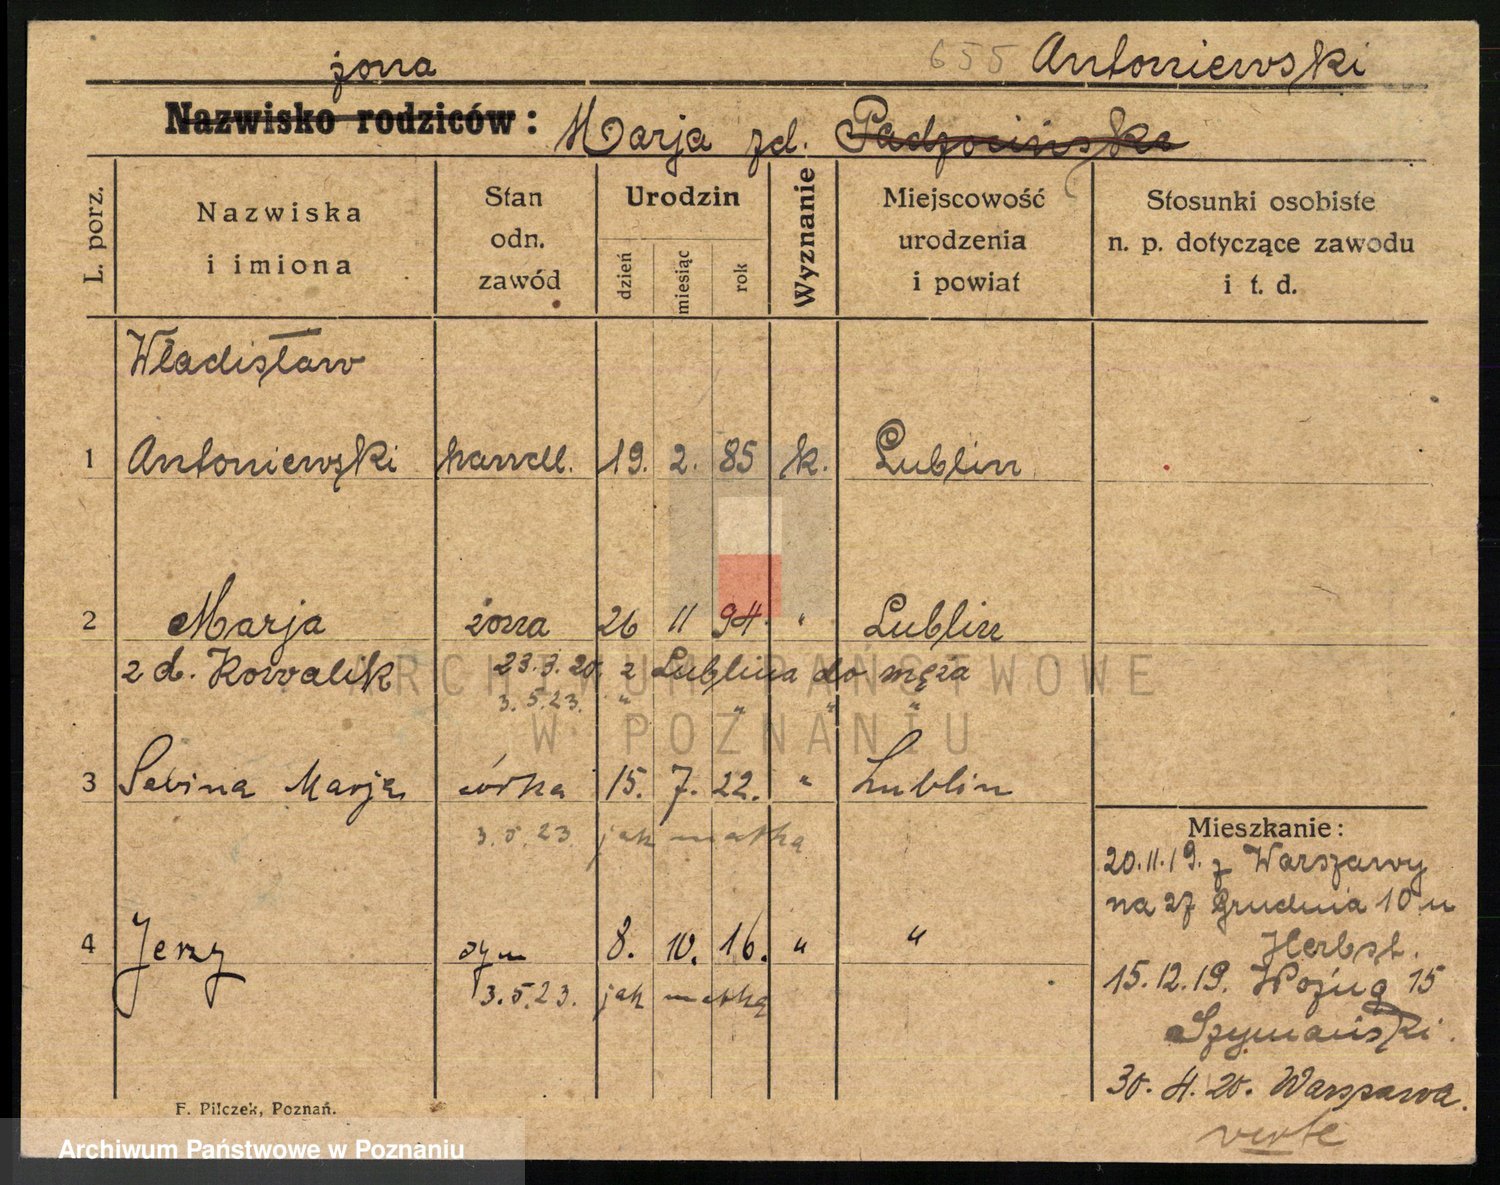 żona
655 Antoniewski
Nazwisko rodziców: Marja zd. Padzocińska
L. porz.
Nazwiska i imiona
Stan odn. zawód
Urodzin
dzień
miesiąc
rok
Wyznanie
Miejscowość urodzenia i powiat
Stosunki osobiste n. p. dotyczące zawodu i t. d.
Władisław
1 Antoniewski 19. 2. 85 k. Lublin
2 Marja żona 26 11 94 " Lublin
z d. Kowalik 23.3.20. z Lublina do męża
3.5.23. " " " "
3 Sabina Marja córka 15. 7. 22. " Lublin
3.5.23 jak matka
4 Jerzy syn 8. 10. 16. " "
3.5.23. jak matka
Mieszkanie:
20.11.19. z Warszawy
na 27 Grudnia 10 u
Herbst.
15.12.19. 15
Szymański.
30. 4. 20. Warszawa.
verte
F. Pilczek, Poznań.
ARCHIWUM PAŃSTWOWE
W POZNANIU
Archiwum Państwowe w Poznaniu